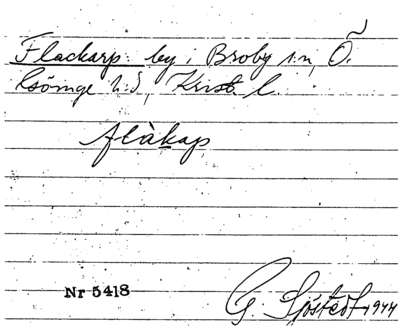 Flackarp by, Broby sn, Ö.
Göinge hd, Krist. l.
flàkap
Nr 5418
G. Sjöstedt 1944